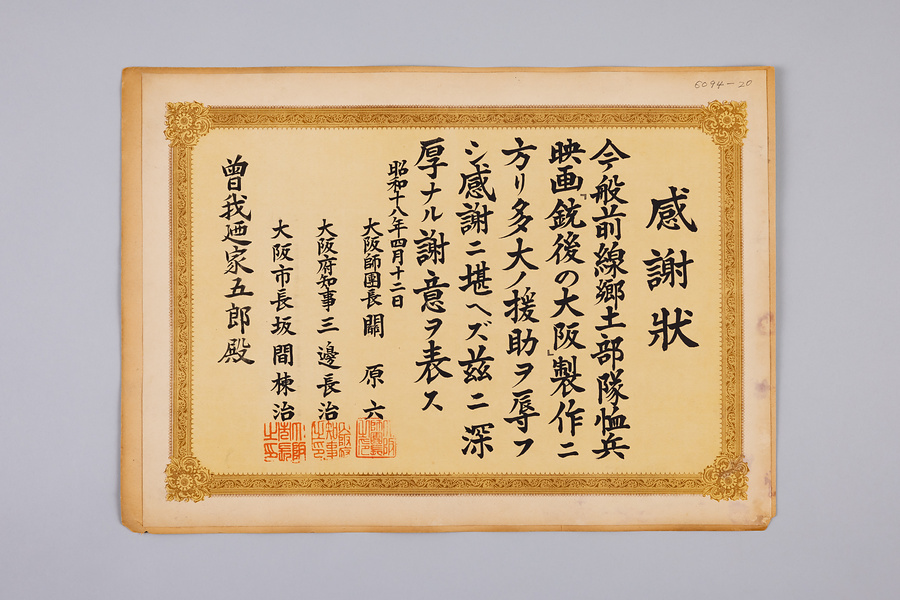 6094-20
感謝狀
今般前線郷土部隊恤兵
映画『銃後の大阪』製作ニ
方リ多大ノ援助ヲ辱フ
シ感謝ニ堪ヘズ茲ニ深
厚ナル謝意ヲ表ス
昭和十八年四月十二日
大阪師團長 關原六
大阪府知事 三邊長治
大阪市長 坂間棟治
曾我廼家五郎殿